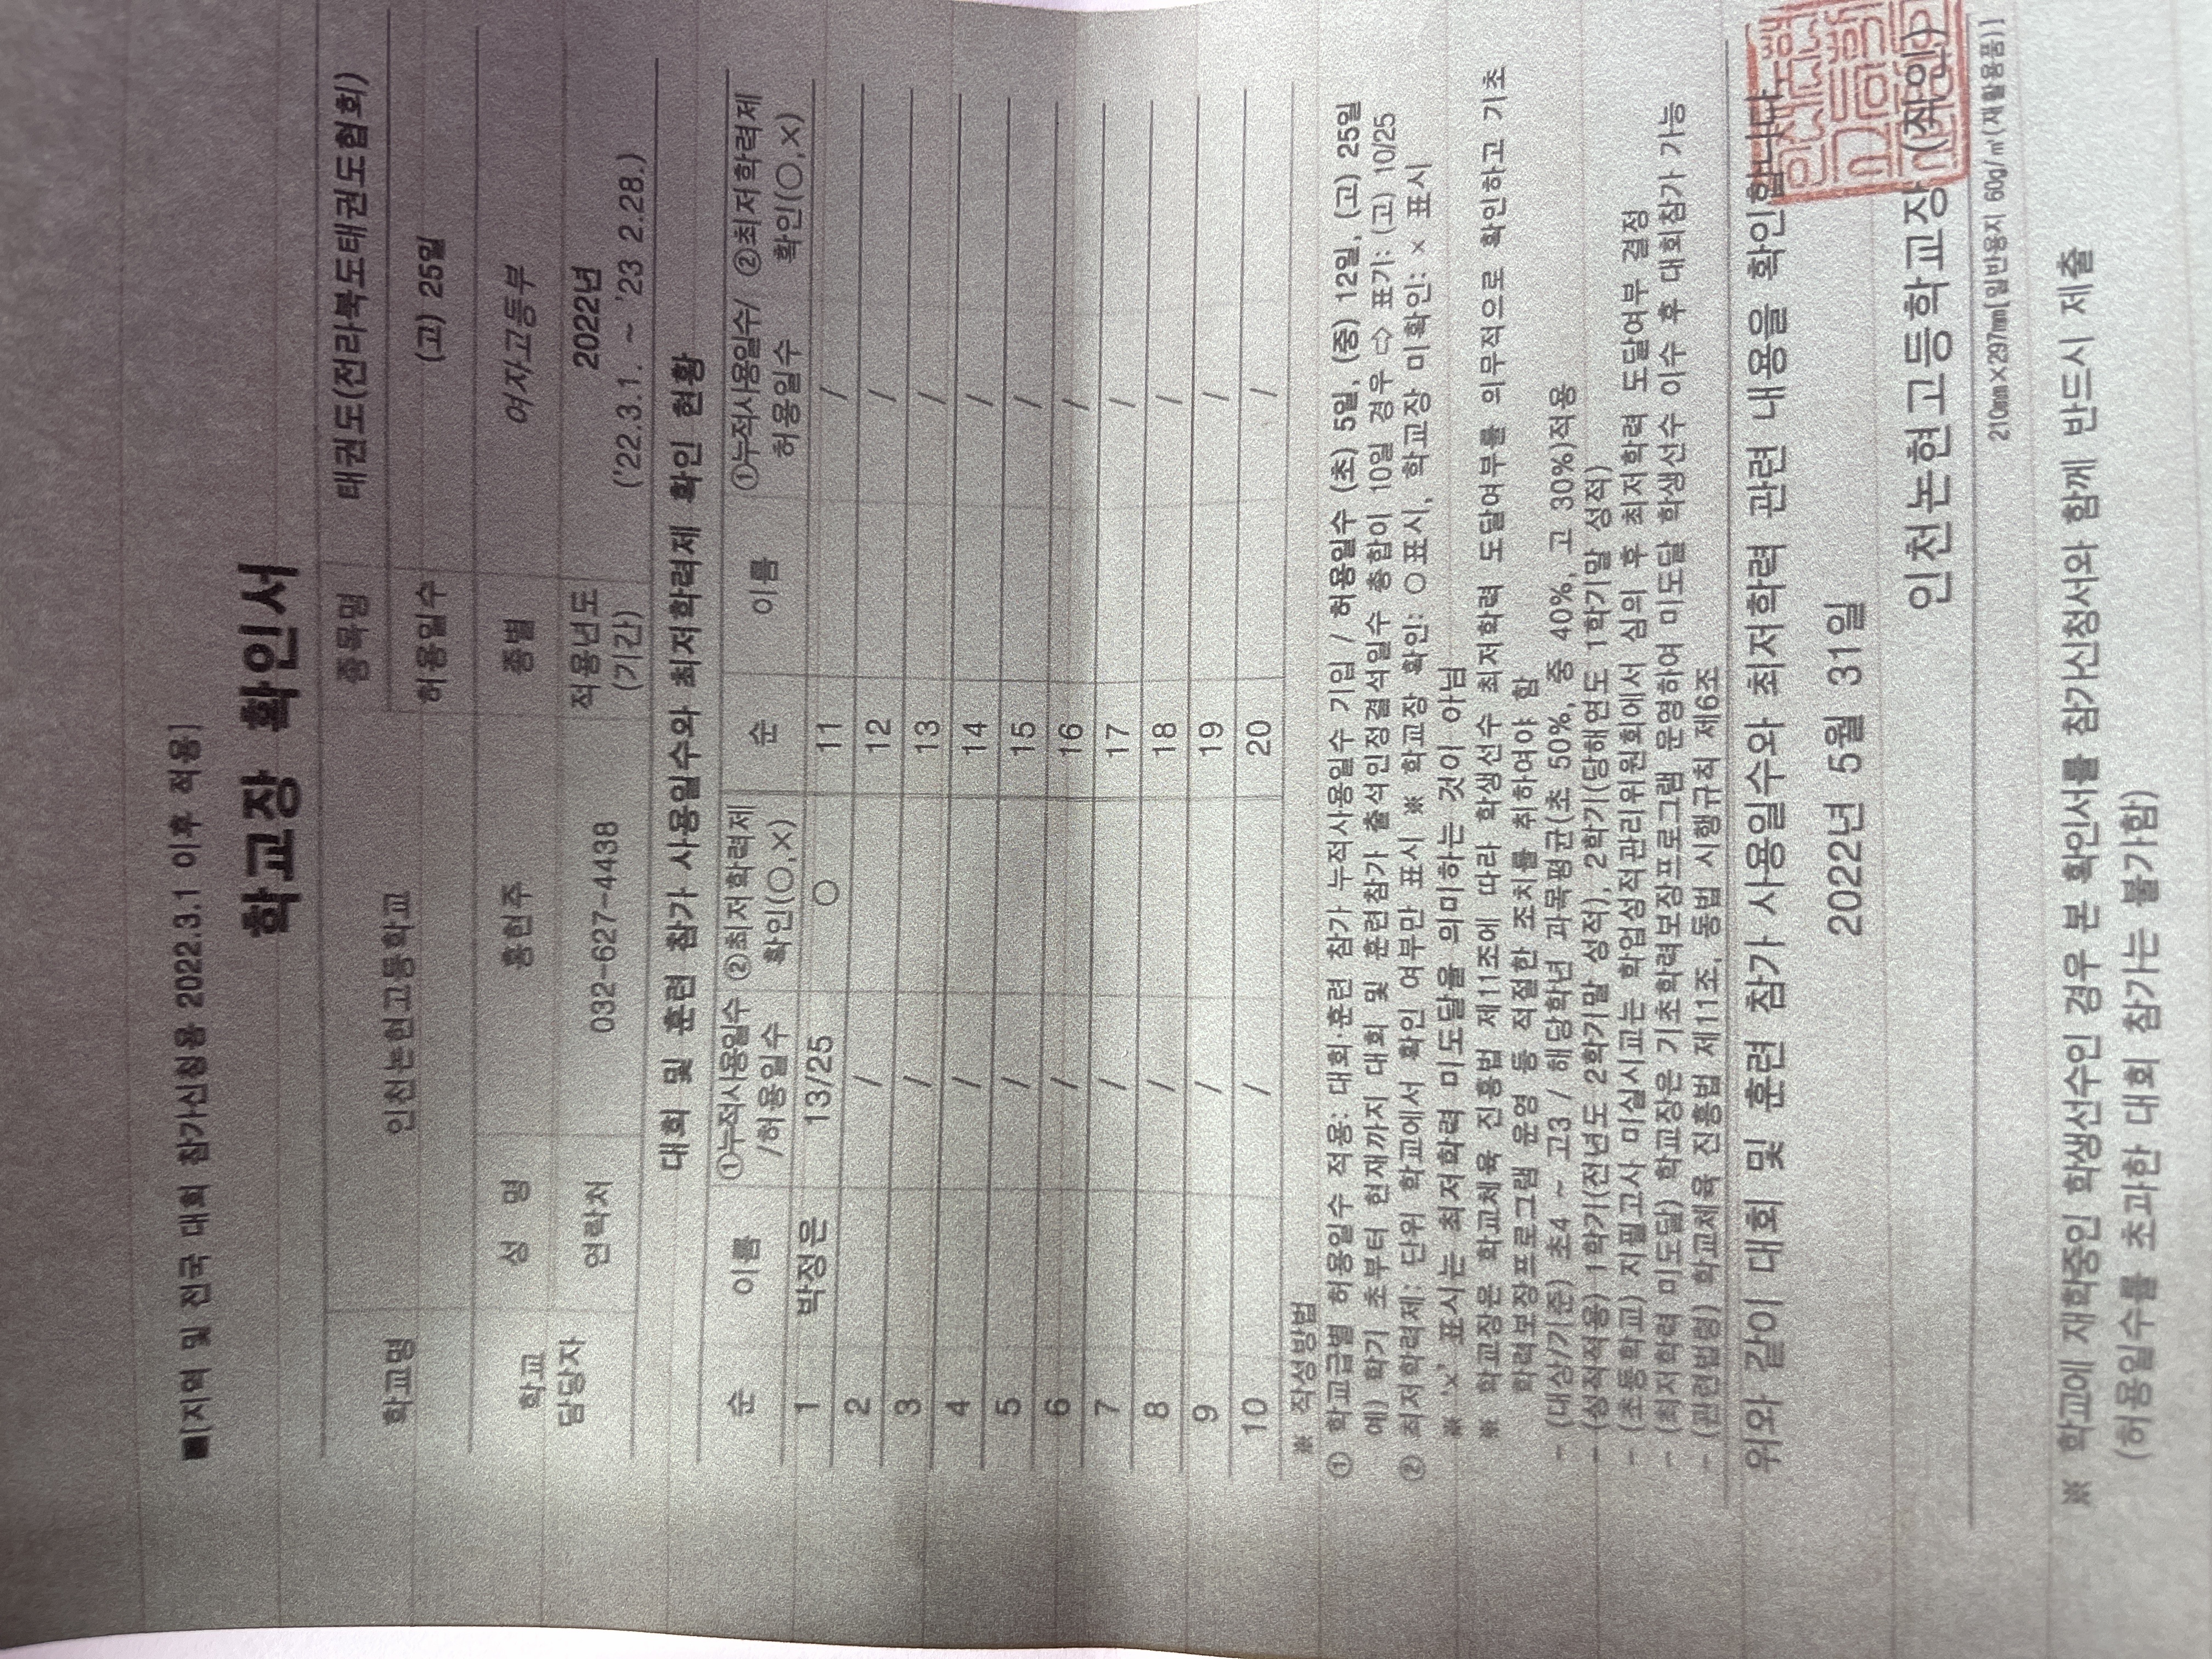 ■[지역 및 전국 대회 참가신청용 2022.3.1 이후 적용]
학교장 확인서
학교명 인천논현고등학교 종목명 태권도(전라북도태권도협회)
허용일수 (고) 25일
학교 담당자 성 명 홍현주 종별 여자고등부
연락처 032-627-4438 적용년도 (기간) 2022년 ('22.3.1. ~ '23 2.28.)
대회 및 훈련 참가 사용일수와 최저학력제 확인 현황
순 이름 ①누적사용일수 /허용일수 ②최저학력제 확인(○,×) 순 이름 ①누적사용일수/ 허용일수 ②최저학력제 확인(○,×)
1 박정은 13/25 ○ 11 /
2 / 12 /
3 / 13 /
4 / 14 /
5 / 15 /
6 / 16 /
7 / 17 /
8 / 18 /
9 / 19 /
10 / 20 /
※ 작성방법
① 학교급별 허용일수 적용: 대회·훈련 참가 누적사용일수 기입 / 허용일수 (초) 5일, (중) 12일, (고) 25일
예) 학기 초부터 현재까지 대회 및 훈련참가 출석인정결석일수 총합이 10일 경우 ⇨ 표기: (고) 10/25
② 최저학력제: 단위 학교에서 확인 여부만 표시 ※ 학교장 확인: ○표시, 학교장 미확인: × 표시
※ '×' 표시는 최저학력 미도달을 의미하는 것이 아님
※ 학교장은 학교체육 진흥법 제11조에 따라 학생선수 최저학력 도달여부를 의무적으로 확인하고 기초
학력보장프로그램 운영 등 적절한 조치를 취하여야 함
- (대상/기준) 초4 ~ 고3 / 해당학년 과목평균(초 50%, 중 40%, 고 30%)적용
- (성적적용) 1학기(전년도 2학기말 성적), 2학기(당해연도 1학기말 성적)
- (초등학교) 지필고사 미실시교는 학업성적관리위원회에서 심의 후 최저학력 도달여부 결정
- (최저학력 미도달) 학교장은 기초학력보장프로그램 운영하여 미도달 학생선수 이수 후 대회참가 가능
- (관련법령) 학교체육 진흥법 제11조, 동법 시행규칙 제6조
위와 같이 대회 및 훈련 참가 사용일수와 최저학력 관련 내용을 확인합니다
2022년 5월 31일
인천논현고등학교장 (직인)
210mm×297mm[일반용지 60g/㎡(재활용품)]
※ 학교에 재학중인 학생선수인 경우 본 확인서를 참가신청서와 함께 반드시 제출
(허용일수를 초과한 대회 참가는 불가함)